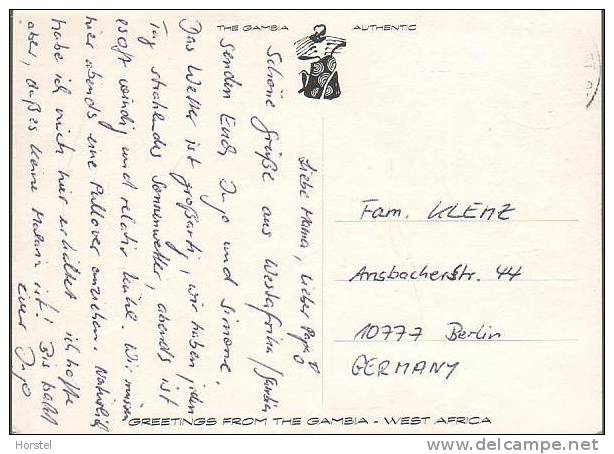 THE GAMBIA AUTHENTIC
Liebe Mama, lieber Papa
Schöne Grüße aus Westafrika/Gambia
senden Euch Ingo und Simone.
Das Wetter ist großartig, wir haben jeden
Tag strahlendes Sonnenwetter, abends ist
es oft windig und relativ kühl. Wir müssen
hier abends eine Pullover anziehen. Natürlich
habe ich mich hier erkältet ich hoffe
aber, daß es keine Malaria ist! Bis bald
Euer Ingo
Fam. KLEMZ
Ansbacherstr. 44
10777 Berlin
GERMANY
GREETINGS FROM THE GAMBIA - WEST AFRICA
Horstel
www.delcampe.net